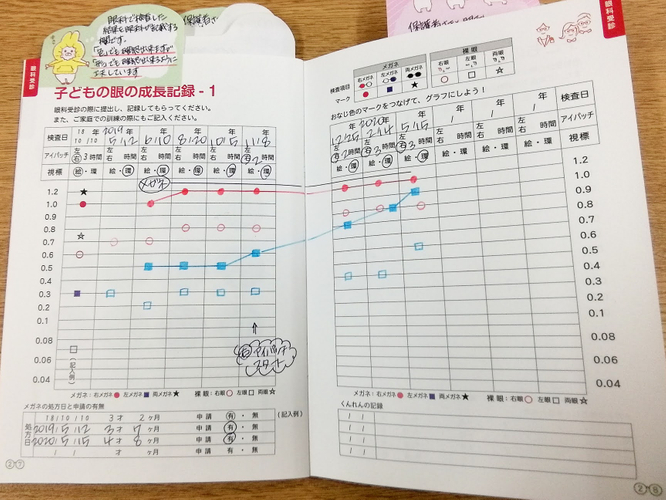 眼科受診
眼科で検査した
結果を眼科が記載する
欄です。
「色」でも 瞬時出来ますが
工夫しています
保護者
子どもの眼の成長記録 - 1
眼科受診の際に提出し、記録してもらってください。
また、ご家庭での訓練の際にもご記入ください。
検査日 18年 10/10 2019年 5/12 年 6/10 年 8/20 年 10/5 年 11/8
アイパッチ 左 右 3時間 左 右 時間 左 右 時間 左 右 時間 左 右 時間 左 右 2時間
視標 絵・環 絵・環 絵・環 絵・環 絵・環 絵・環
メガネ
1.2
1.0
0.9
0.8
0.7
0.6
0.5
0.4
0.3
0.2
0.1
0.08
0.06
0.04
(記入例)
アイパッチ
スタート
メガネ:右メガネ 左メガネ 両メガネ 裸眼:右眼 左眼 両眼
メガネの処方日と申請の有無
処方日
18/10/10 3才 2ヶ月 申請 有・無 (記入例)
2019/5/12 3才 7ヶ月 申請 有・無
2020/5/15 4才 8ヶ月 申請 有・無
/ / 才 ヶ月 申請 有・無
27
眼科受診
メガネ 裸眼
検査項目 右メガネ 左メガネ 両メガネ 右眼 左眼 両眼
マーク
おなじ色のマークをつなげて、グラフにしよう!
年 12/25 2020年 2/14 年 5/15 年 / 年 / 年 / 年 / 検査日
左 右 2時間 左 右 3時間 左 右 3時間 左 右 時間 左 右 時間 左 右 時間 左 右 時間 アイパッチ
絵・環 絵・環 絵・環 絵・環 絵・環 絵・環 絵・環 視標
1.2
1.0
0.9
0.8
0.7
0.6
0.5
0.4
0.3
0.2
0.1
0.08
0.06
0.04
メガネ:右メガネ 左メガネ 両メガネ 裸眼:右眼 左眼 両眼
くんれんの記録
/ /
/ /
/ /
28